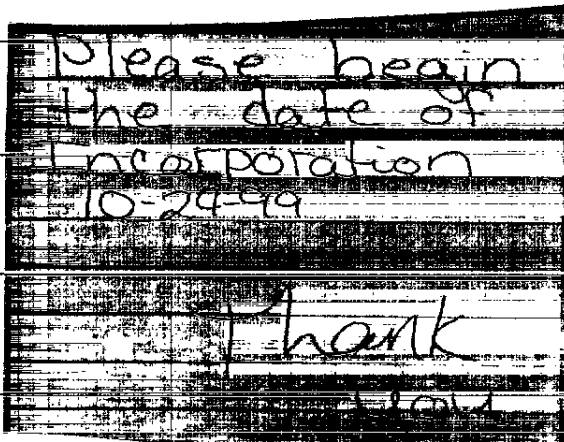 Please begin
the date of
Incorporation
10-29-99
Thank